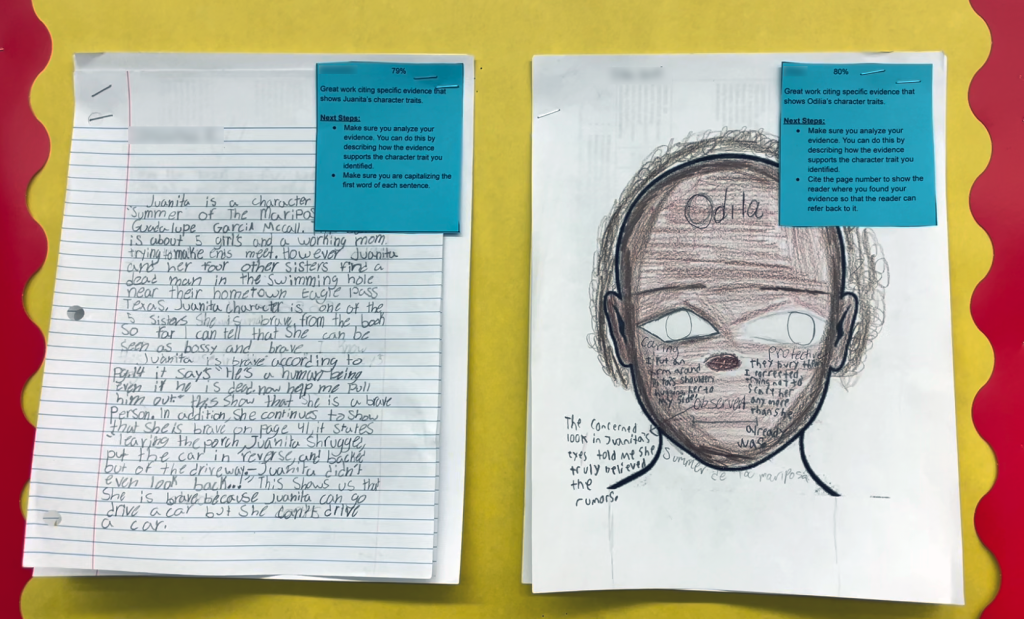 79%
Great work citing specific evidence that
shows Juanita's character traits.
Next Steps:
Make sure you analyze your
evidence. You can do this by
describing how the evidence
supports the character trait you
identified.
Make sure you are capitalizing the
first word of each sentence.
Juanita is a character
"Summer of The Maripos
Guadalupe Garcia Mccall.
is about 5 girls and a working mom
trying to make ends meet. However Juanita
and her four other sisters find a
dead man in the swimming hole
near their hometown Eagle Pass
Texas. Juanita character is one of the
5 sisters she is brave from the book
So far I can tell that she can be
seen as bossy and brave
Juanita is brave according to
it says "He's a human being
even if he is dead now help me pull
him out" this show that she is a brave
Person. In addition, she continues to show
that she is brave on page 41, it states
"leaving the porch, Juanita Shrugged,
put the car in reverse, and backed
out of the driveway. Juanita didn't
even look back..." This shows us that
She is brave because Juanita can go
drive a car but she can't drive
a car.
80%
Great work citing specific evidence that
shows Odilia's character traits.
Next Steps:
Make sure you analyze your
evidence. You can do this by
describing how the evidence
supports the character trait you
identified.
Cite the page number to show the
reader where you found your
evidence so that the reader can
refer back to it.
Odilia
caring
I put an
arm around
shoulder
her to
my side
protective
they bury them
I corrected
trying not to
scare her
any more
than she
already
was
observant
The concerned
look in Juanita's
eyes told me she
truly believed
the
rumors.
Summer de la mariposa